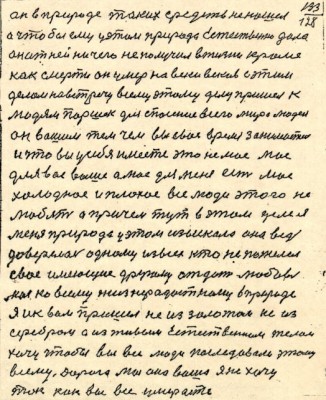 123
128
он в природе таких средств не нашел
а чтобы ему в этом природа Естественно дала
он от ней ничего не получил в жизни кроме
как смерти он умер на веки веков с этим
делом навстречу всему этому делу пришел к
людям Паршек для спасение всего мира людей
он вашим тем чем вы свое время занимаетесь
и что вы у себя имеете это не мое мое
для вас ваше а мое для меня есть мое
холодное и плохое все люди этого не
любят а причем тут в этом деле я
меня природа в этом изыскала она ведь
доверелась одному из всех кто не пожелел
свое имеющие другому отдат любовь
моя ко всему жизнерадостному в природе
Я и к вам пришел не из золотом не из
серебром а из живым Естественным телом
хочу чтобы вы все люди последовали этому
всему. Дорога моя она ваша я не хочу
так как вы все умераете